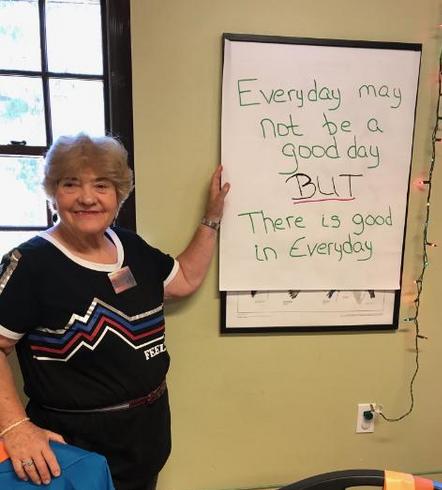 Everyday may
not be a
good day
BUT
There is good
in Everyday
FEEL